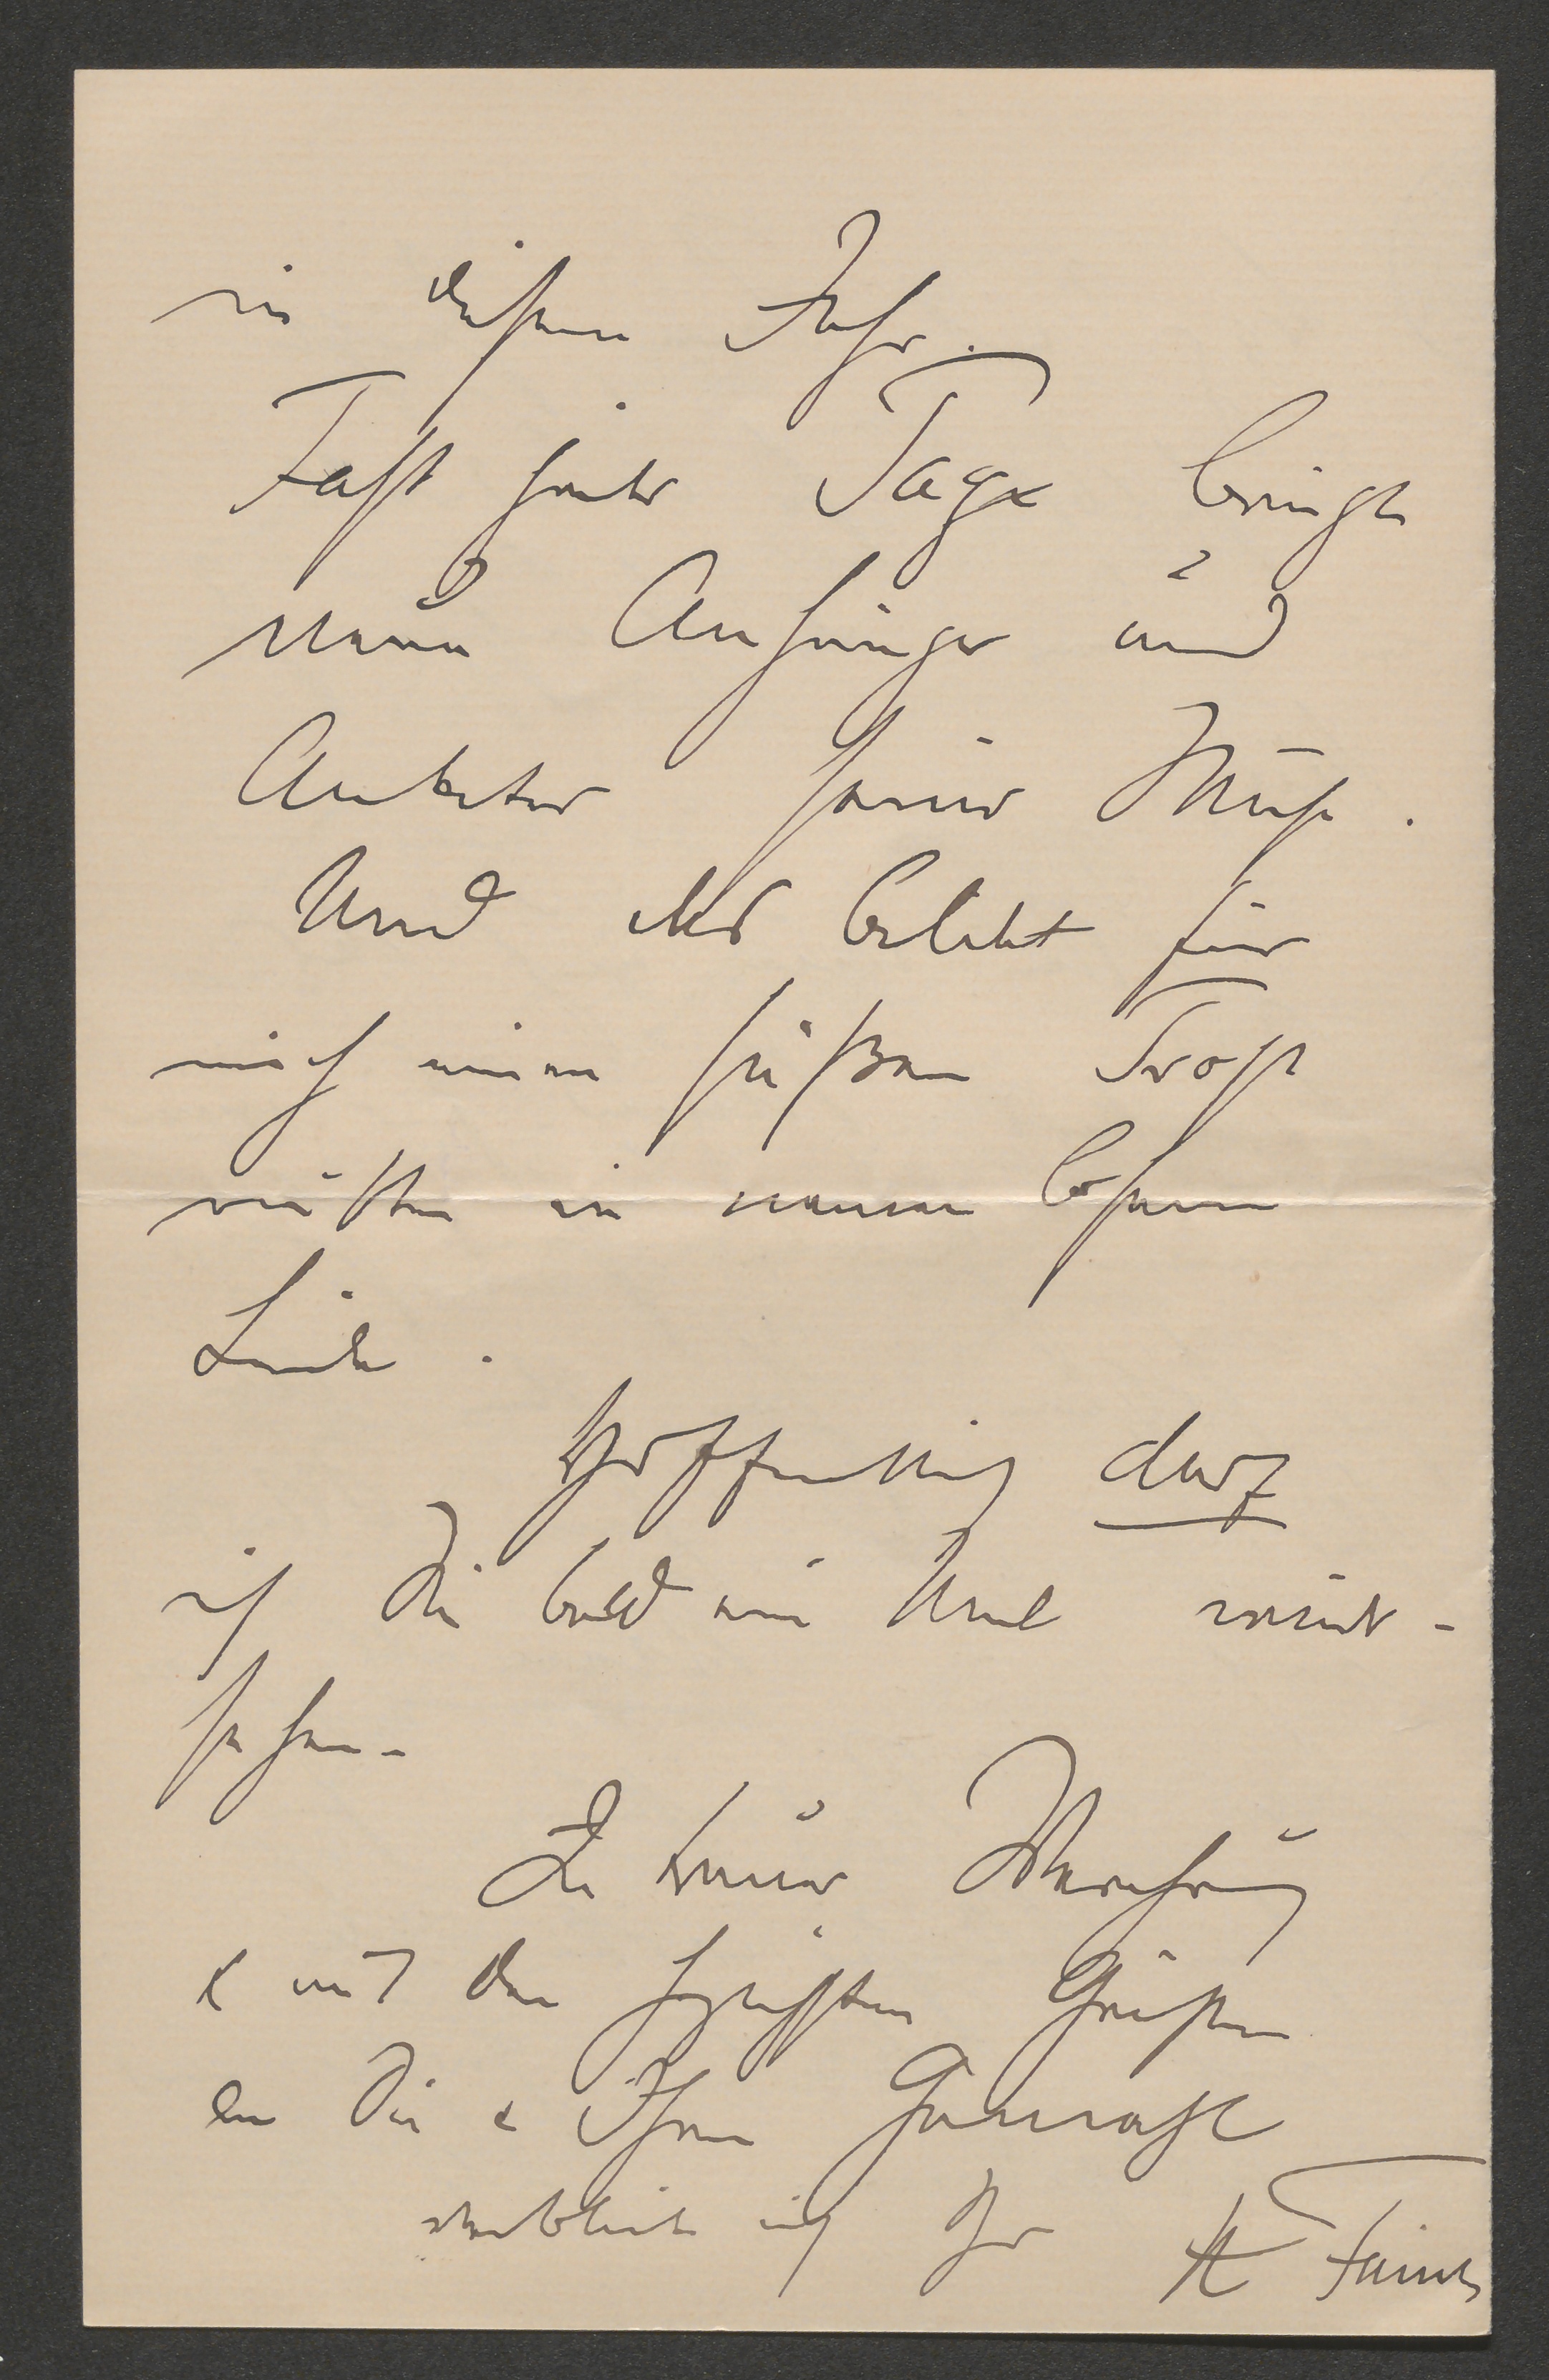 in diesem Jahr.
Fast jeder Tag bringt
neue Anhänger und
Anbeter seiner Muse.
Und das bildet für
mich einen süßen Trost
mitten in meinem bösen
Leide.
Hoffentlich darf
ich Sie bald ein Mal wieder-
sehen.
In treuer Verehrung
& mit den herzlichsten Grüßen
an Sie & Ihren Gemahl
verbleibe ich Ihr